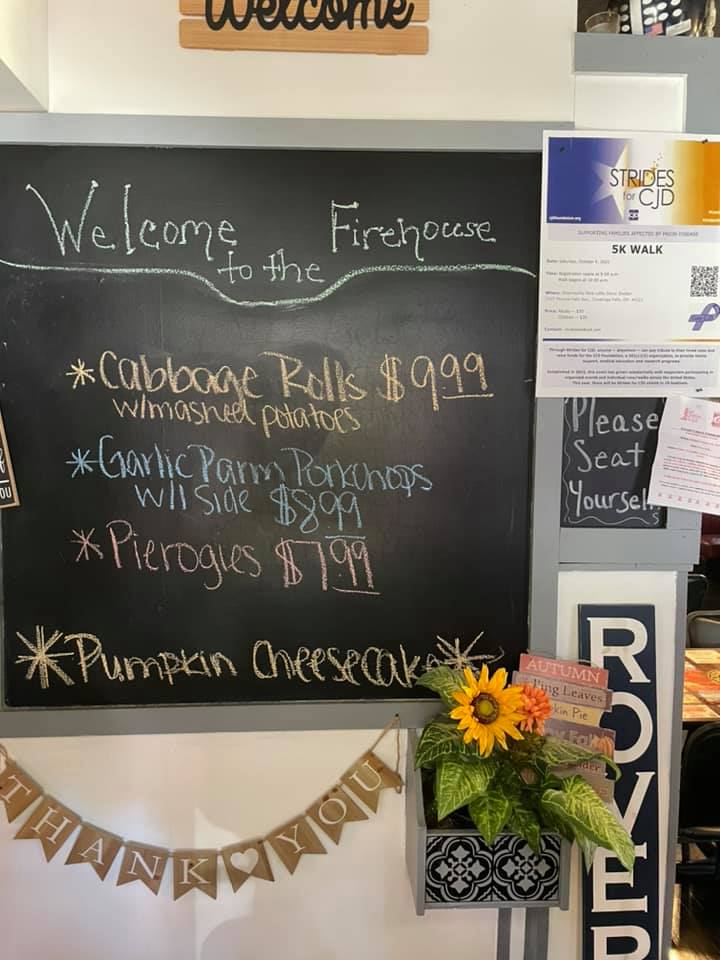 Welcome
Welcome to the Firehouse
*Cabbage Rolls $9.99
w/mashed potatoes
*Garlic Parm Porkchops
w/1 side $8.99
*Pierogies $7.99
*Pumpkin Cheesecake*
STRIDES
for CJD
SUPPORTING FAMILIES AFFECTED BY PRION DISEASE
5K WALK
Please
Seat
Yourself
YOU
AUTUMN
ling Leaves
kin Pie
Fall
ider
THANK YOU
ROVER